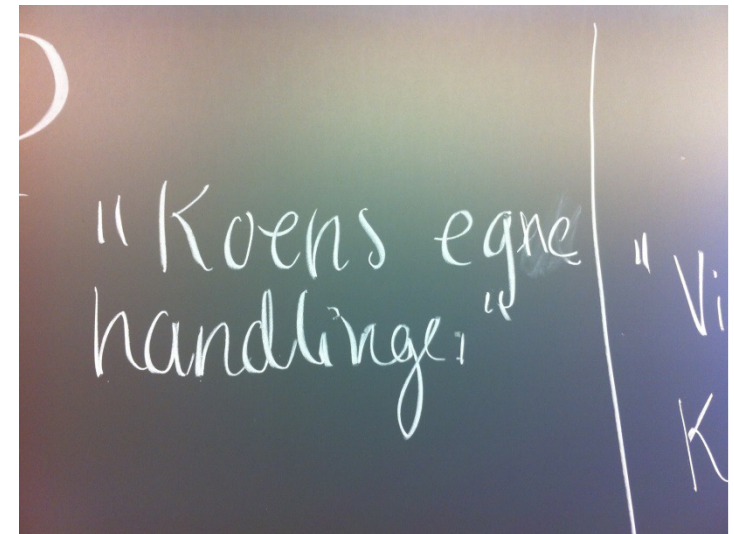 "Koens egne
handlinger"
"Vi
K